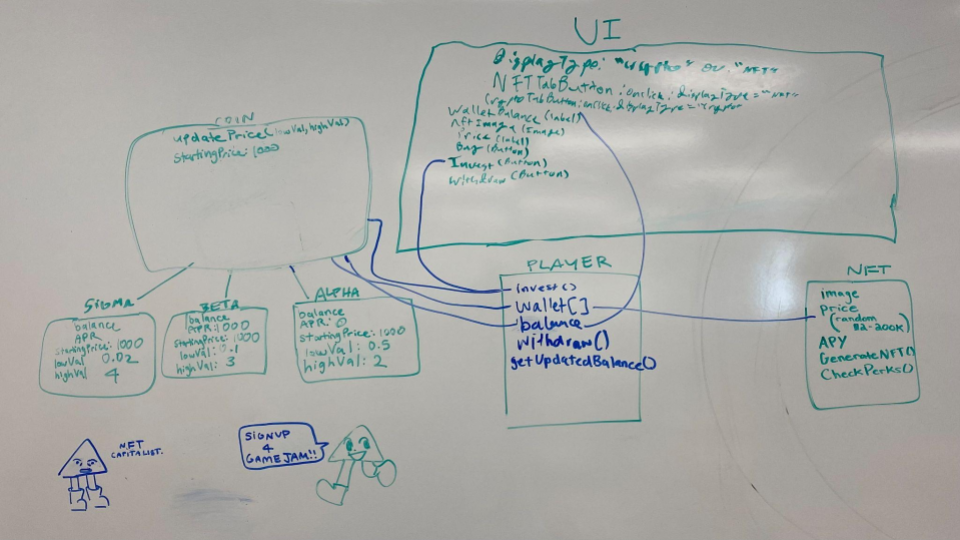 UI
DisplayType: "crypto" or "NFT"
NFTTabButton: onclick: displayType = "NFT"
CryptoTabButton: onclick: displayType = "crypto"
WalletBalance (label)
nftImage (Image)
Price (label)
Buy (Button)
Invest (Button)
Withdraw (Button)
COIN
updatePrice(lowVal, highVal)
startingPrice: 1000
SIGMA
balance
APR
startingPrice: 1000
lowVal 0.02
highVal 4
BETA
balance
APR: 1000
startingPrice: 1000
lowVal: 0.1
highVal: 3
ALPHA
balance
APR: 0
startingPrice: 1000
lowVal: 0.5
highVal: 2
PLAYER
invest()
wallet[]
balance
withdraw()
getUpdatedBalance()
NFT
image
Price
(random
200K)
APY
GenerateNFT()
CheckPerks()
NFT
CAPITALIST.
SIGNUP
4
GAMEJAM!!